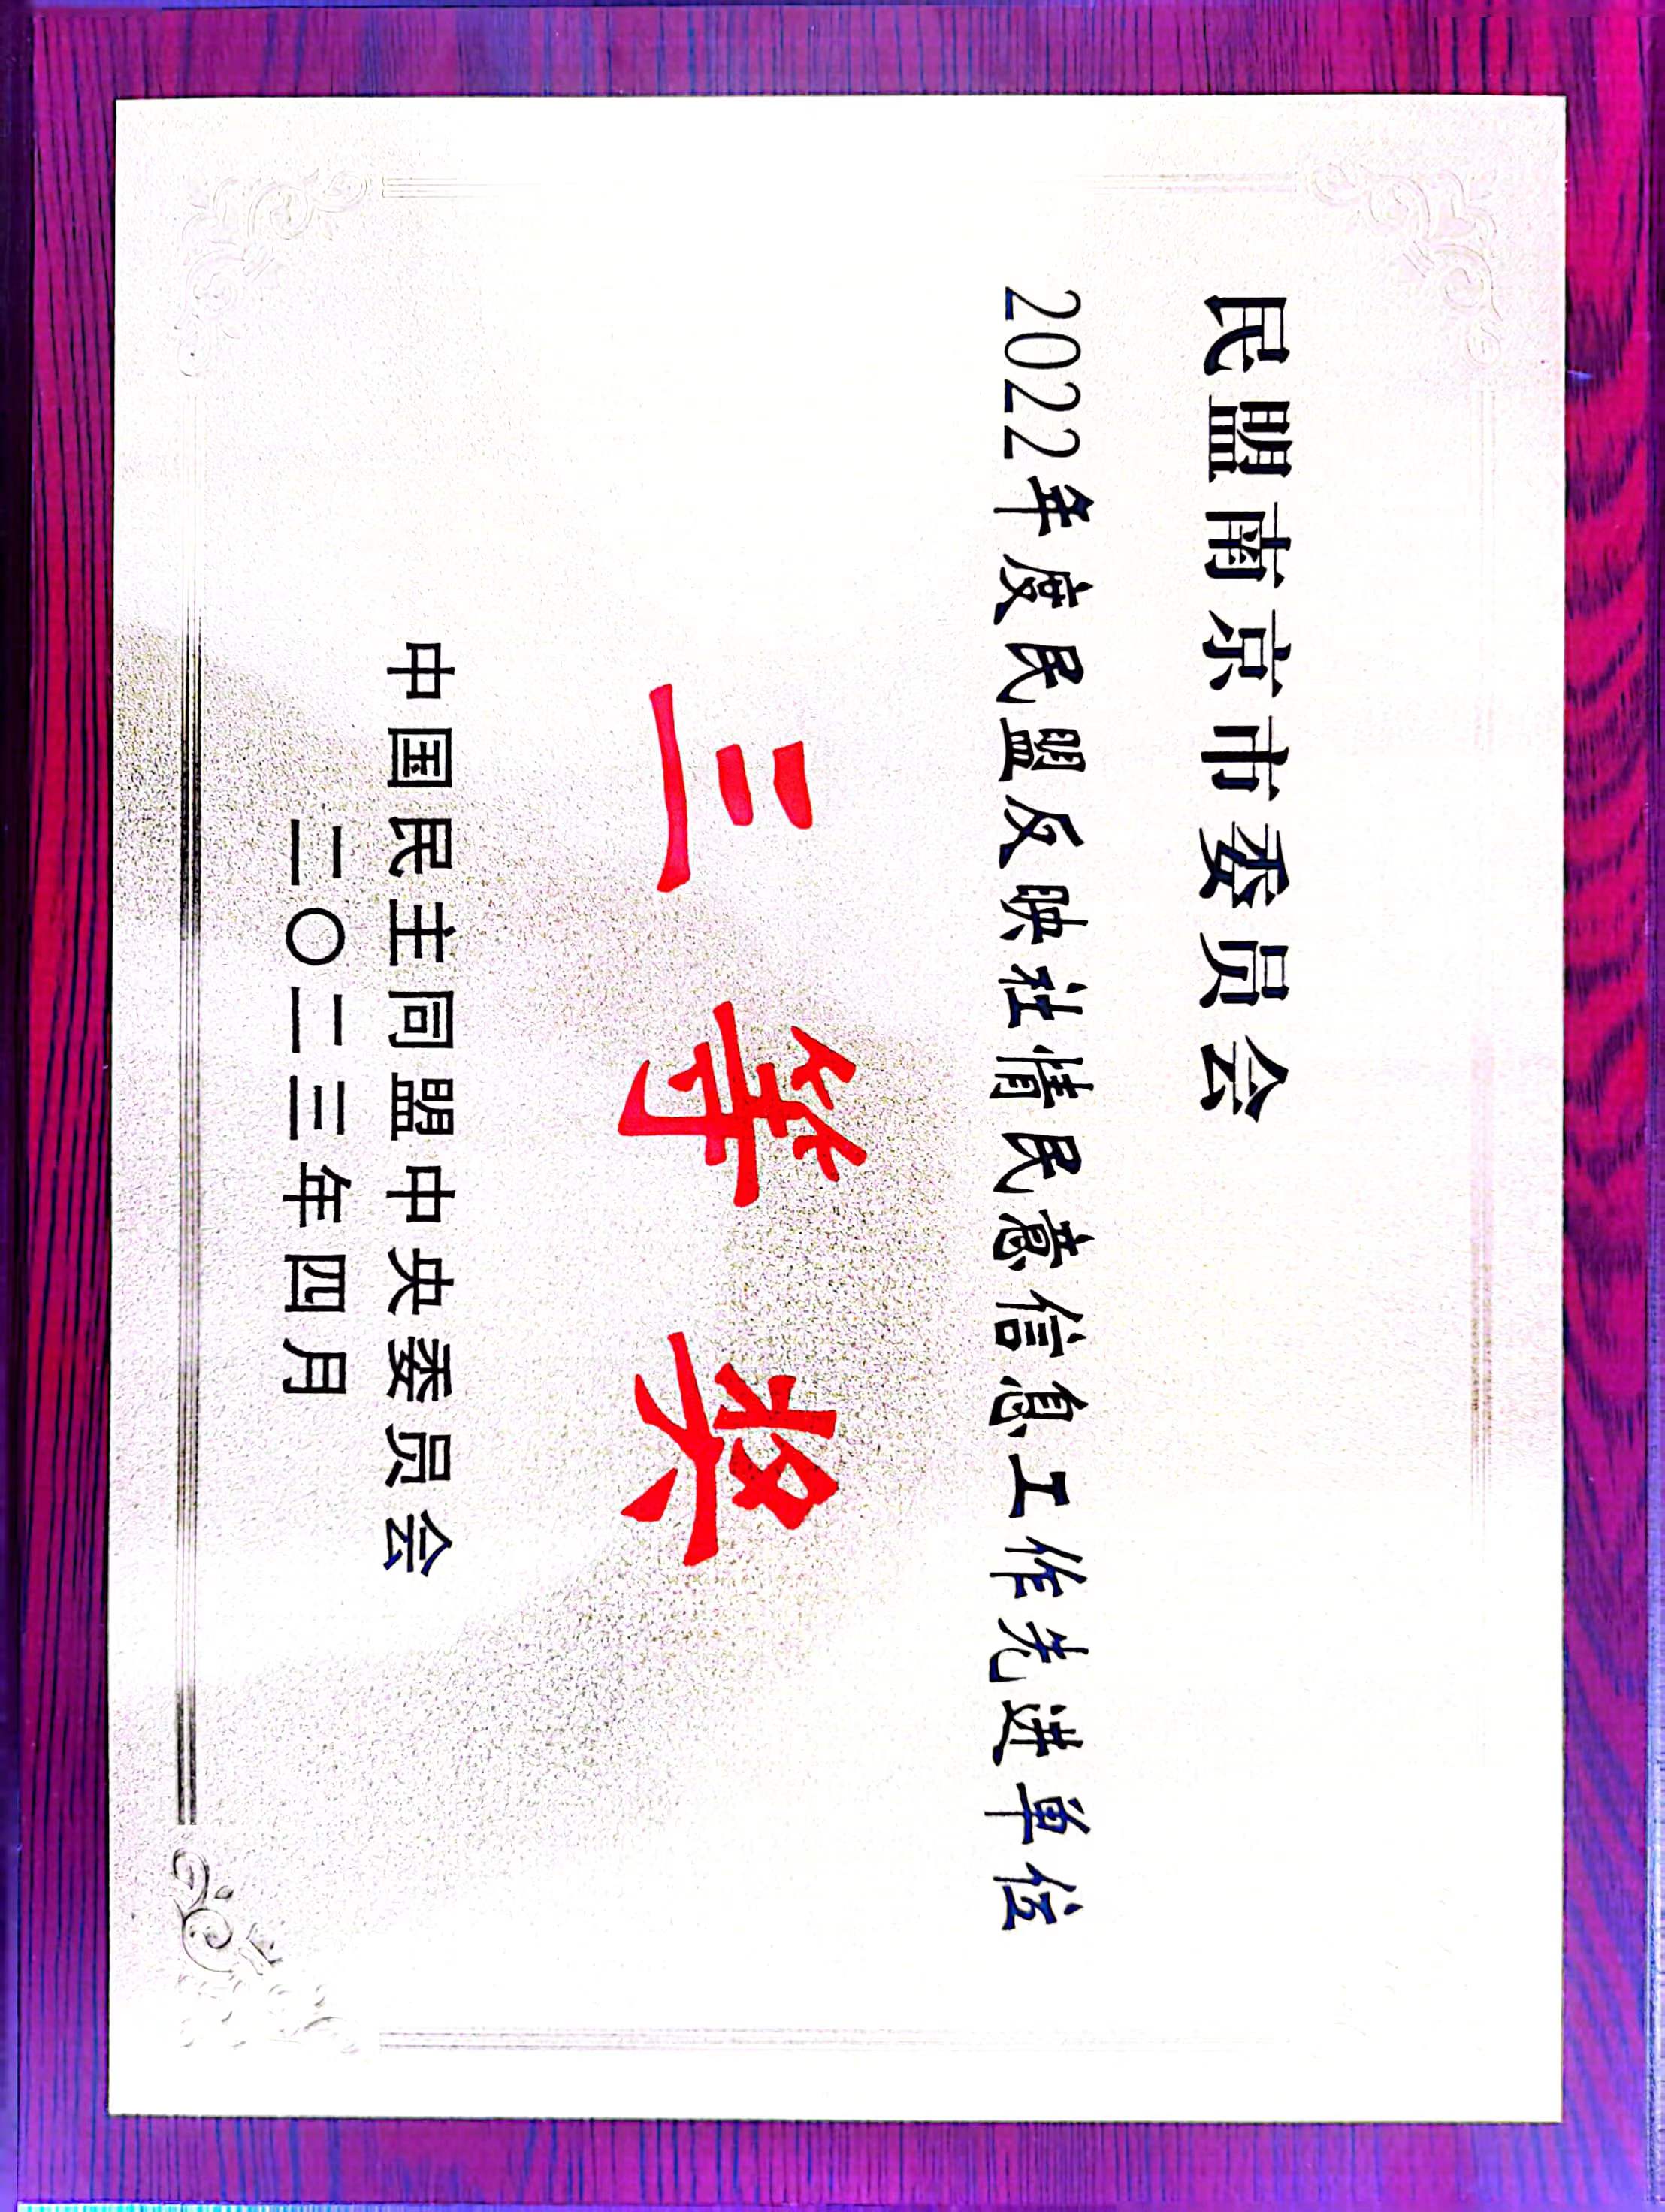 民盟南京市委员会
2022年度民盟反映社情民意信息工作先进单位
三等奖
中国民主同盟中央委员会
二〇二三年四月